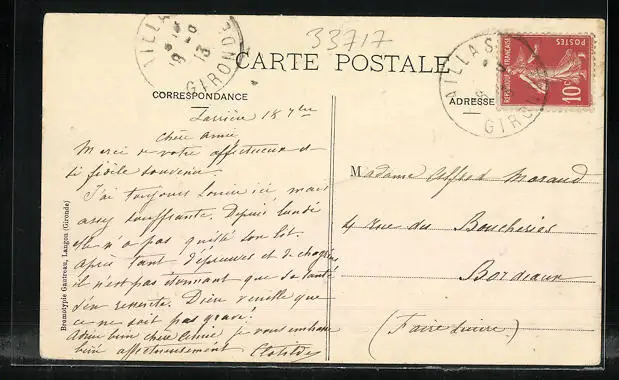 33717
AILLAS
18 - 9
13
GIRONDE
CARTE POSTALE
AILLAS
GIRONDE
REPUBLIQUE FRANÇAISE
POSTES
10c
CORRESPONDANCE
ADRESSE
Larrière 18 7bre
Chère amie
Merci de votre affectueux et
si fidèle souvenir.
J'ai toujours Louise ici mais
assez souffrante. Depuis lundi
elle n'a pas quitté son lit.
Après tant d'épreuves et de chagrins
il n'est pas étonnant que sa santé
s'en ressente. Dieu veuille que
ce ne soit pas grave!
Adieu bien chère amie je vous embrasse
bien affectueusement Clotilde
Madame Alfred Moraud
4 rue des Boucheries
Bordeaux
(Faire suivre)
Bromotypie Gautreau, Langon (Gironde)